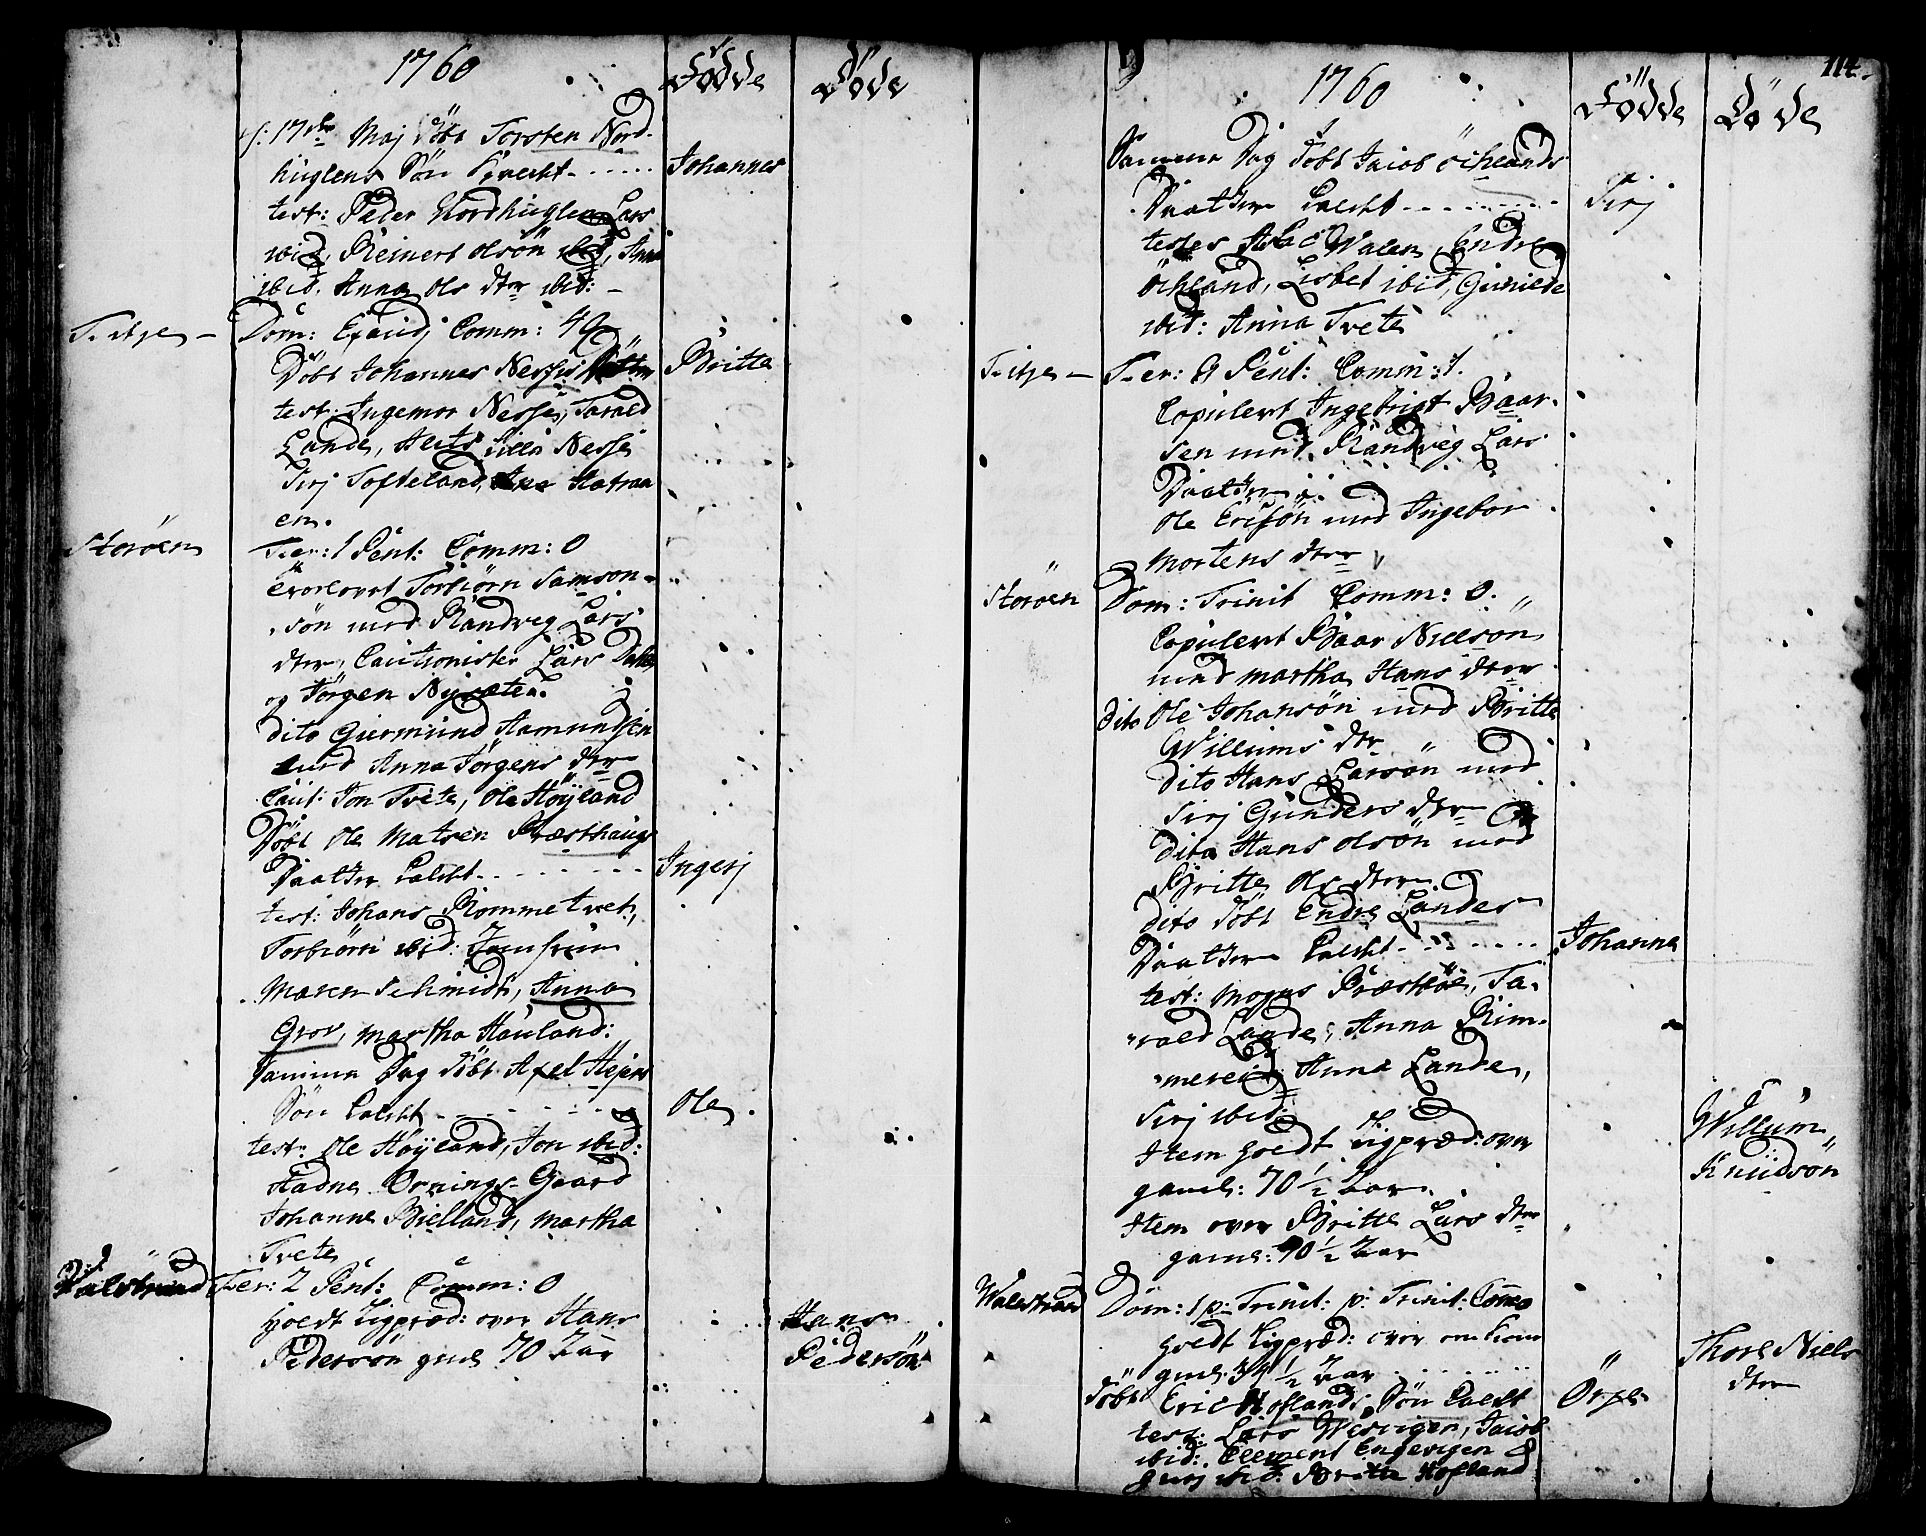 1760
Födde
Döde
d: 17de Maj Döbt Torsten Nord-
huglens Sön kaldt
Johannes
test: Peder Nordhuglen, Lars
ibid, Reinert Olsön ibid, Anna
ibid, Anna Ols dtr ibid:
Fitje
Dom: Exaudj Comm: 49
Döbt Johannes Nesses Datter
Britta
test: Ingemor Nesse, Tarald
Lande, Nesse
Sirj Tofteland, Hatraa
en.
Storöen
Fer: 1 Pent: Comm: 0
Trolovet Torbiörn Samson
sön med Randveg Lars
dtr, Cautionister Lars
og Jörgen Nysæter.
Dito Giermund Aamundsen
med Anna Jörgens dtr
Caut: Jon Tvete, Ole Höyland
Döbt Ole Matsen Præsthaugs
Daatter kaldt
Ingerj
test: Johans Rommetvet,
Torbiörn ibid: Jomfrue
Maren Schmidt, Anna
Grov, Martha Hauland:
Samme Dag Döbt Axel
Sön kaldt
Ole
test: Ole Höyland, Jon ibid:
Aadne Ornings-Gaard
Johanne Bielland, Martha
Tvete
Walestrand Fer: 2 Pent: Comm: 0
holdt Ligpræd: over Hans
Pedersön gml 70 Aar
Hans
Pedersön
114.
1760
Födde
Döde
Samme Dag Döbt Jacob Öchlands
Daatter kaldt
Sirj
testes Walen, Endre
Öchland, Lisbet ibid, Gunilde
ibid: Anna Tvete
Fitje
Fer: 2 Pent: Comm: 1.
Copulert Ingebrigt Baar-
sen med Randveg Lars
Daatter
Ole Ericsön med Ingebor
Mortens dtr
Storöen
Dom: Trinit Comm: 0.
Copulert Baar Nielsön
med Martha Hans dtr
Dito Ole Johansön med Britte
Willums dtr
Dito Hans Larsön med
Sirj Gunders dtr
Dito Hans Olsön med
Britte Ols dtr
Dito Döbt Endre Landes
Daatter kaldt
Johanna
test: Mogns Præstöe, Ta-
rald Lande, Anna Rim-
mereid, Anna Lande,
Sirj ibid:
Item holdt Ligpræd: over
Willum
Knudsön
gaml: 70 1/2 Aar
Item over Britte Lars dtr
gaml: 70 1/2 Aar
Walestrand
Dom: 1 p: Trinit: p: Trinit: Com:0
holdt Ligpræd: over
gml. 39 1/2 Aar
Thore Niels
dtr
Döbt Eric Hoflands Sön kaldt
test: Lars Jacob
ibid: Clement Engevigen
ibid: Britte Hofland